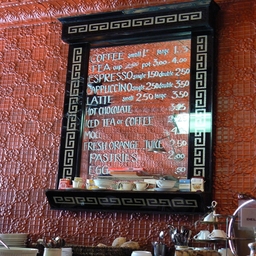 COFFEE small 1.- large 1.3
TEA cup pot 3.00 4.00
ESPRESSO single 1.50 double 2.50
CAPPUCCINO single 2.50 double 3.50
LATTE small 2.50 large 3.50
HOT CHOCOLATE
ICED TEA or COFFEE 2
FRESH ORANGE JUICE 2.50
PASTRIES 2.00
EGG